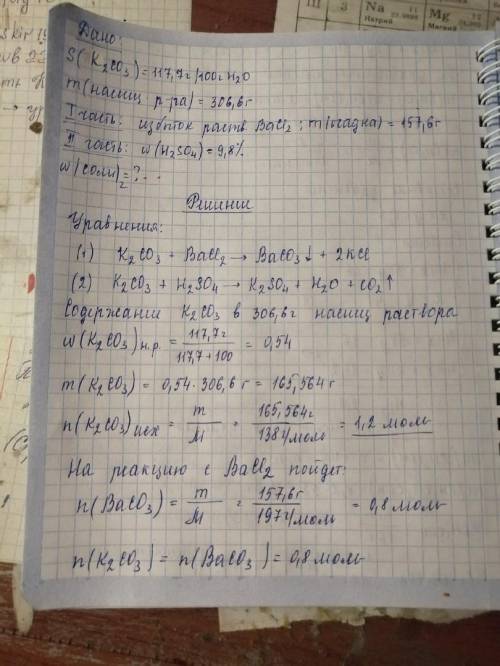 III 3 Na 11 22,9898 Натрий Mg
Дано
S(K₂CO₃) = 117,7г/100г H₂O
m(насыщ р-ра) = 306,6г
I часть: избыток раств. BaCl₂; m(осадка) = 157,6г
II часть: w(H₂SO₄) = 9,8%
w(соли)₂ = ? ...
Решение
Уравнения:
(1) K₂CO₃ + BaCl₂ → BaCO₃↓ + 2KCl
(2) K₂CO₃ + H₂SO₄ → K₂SO₄ + H₂O + CO₂↑
Содержание K₂CO₃ в 306,6г насыщ раствора
w(K₂CO₃)н.р. = 117,7г / 117,7+100 = 0,54
m(K₂CO₃) = 0,54·306,6г = 165,564г
n(K₂CO₃)исх = m / M = 165,564г / 138г/моль = 1,2 моль
На реакцию с BaCl₂ пойдет:
n(BaCO₃) = m / M = 157,6г / 197г/моль = 0,8 моль
n(K₂CO₃) = n(BaCO₃) = 0,8 моль